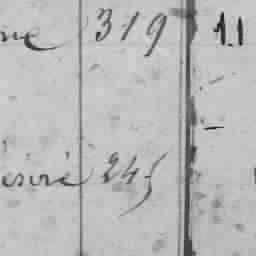 ne 319 11
ésiré 245